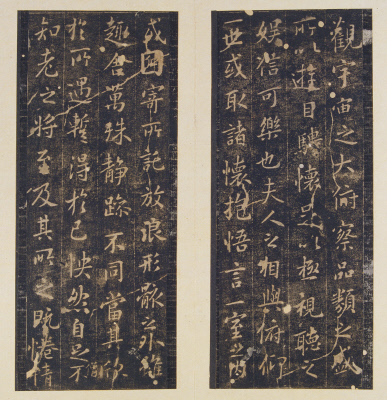 觀宇宙之大俯察品類之盛
所以遊目騁懷足以極視聽之
娛信可樂也夫人之相與俯仰
一世或取諸懷抱悟言一室之內
或因寄所託放浪形骸之外雖
趣舍萬殊靜躁不同當其欣
於所遇暫得於己怏然自足不
知老之將至及其所之既惓情